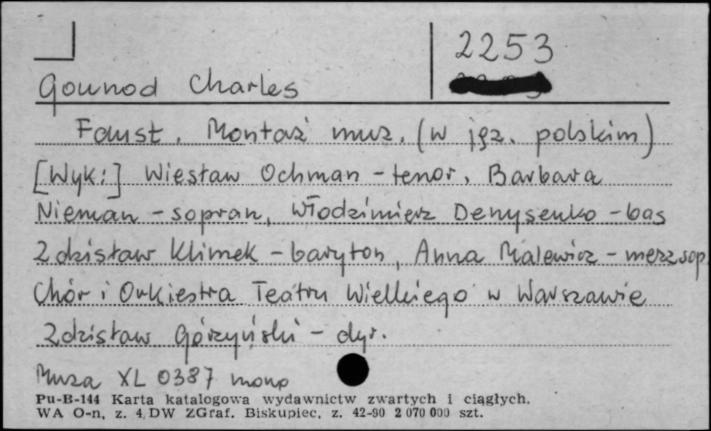 2253
Gounod Charles
Faust. Montaż muz. (w jęz. polskim)
[Wyk:] Wiesław Ochman - tenor, Barbara
Nieman - sopran, Włodzimierz Denysenko - bas
Zdzisław Klimek - baryton, Anna Malewicz - mezzosop.
Chór i Orkiestra Teatru Wielkiego w Warszawie
Zdzisław Górzyński - dyr.
Muza XL 0387 mono
Pu-B-144 Karta katalogowa wydawnictw zwartych i ciągłych.
WA O-n, z. 4 DW ZGraf. Biskupiec, z. 42-90 2 070 000 szt.